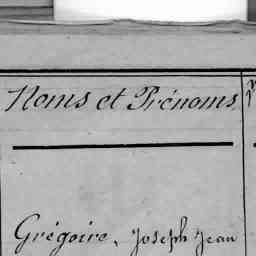 Noms et Prénoms
Grégoire, Joseph Jean